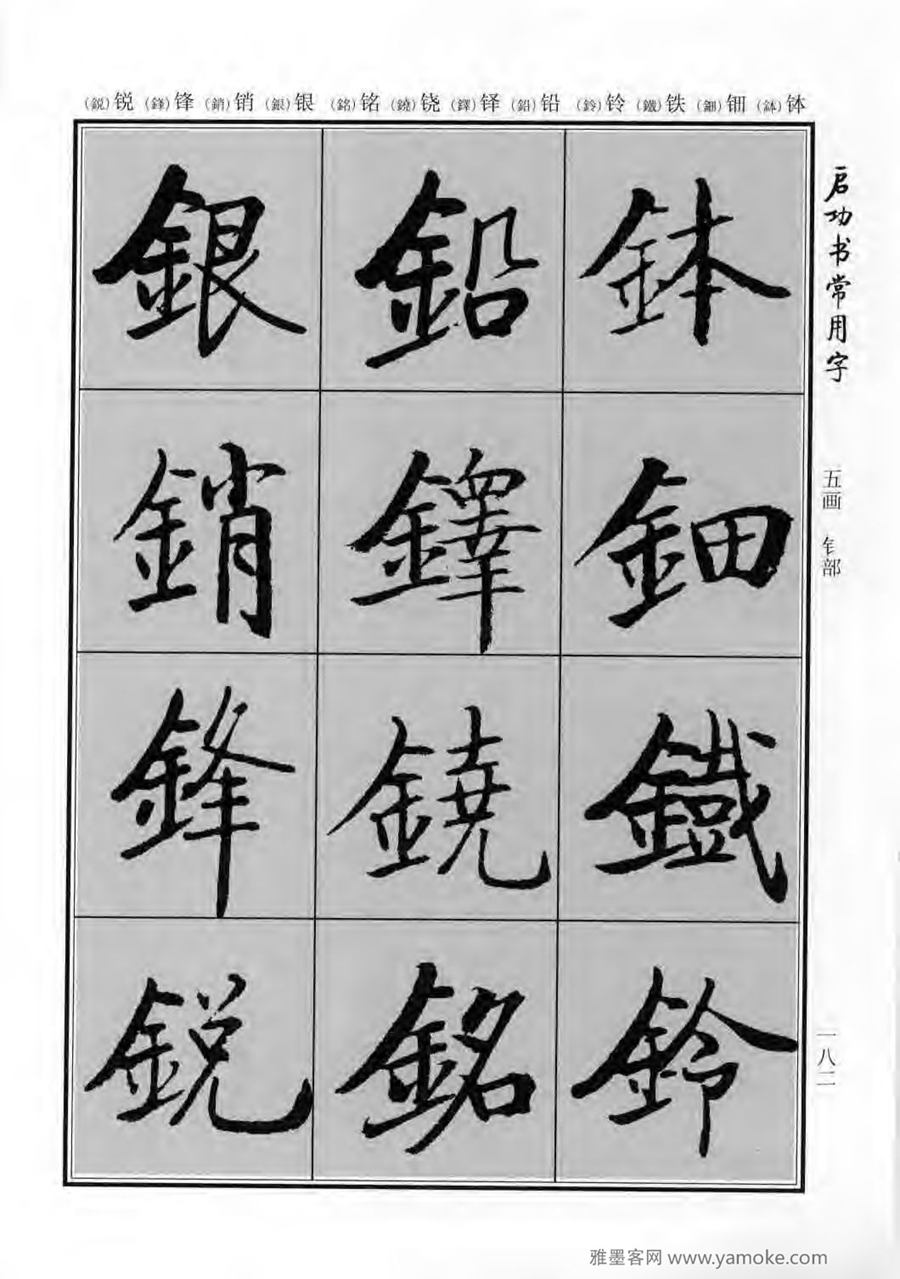 (鋭)锐 (鋒)锋 (銷)销 (銀)银 (銘)铭 (鐃)铙 (鐸)铎 (鉛)铅 (鈴)铃 (鐵)铁 (鈿)钿 (鉢)钵
启功书常用字
五画 钅部
一八二
鉢
鈿
鐵
鈴
鉛
鐸
鐃
銘
銀
銷
鋒
鋭
雅墨客网 www.yamoke.com